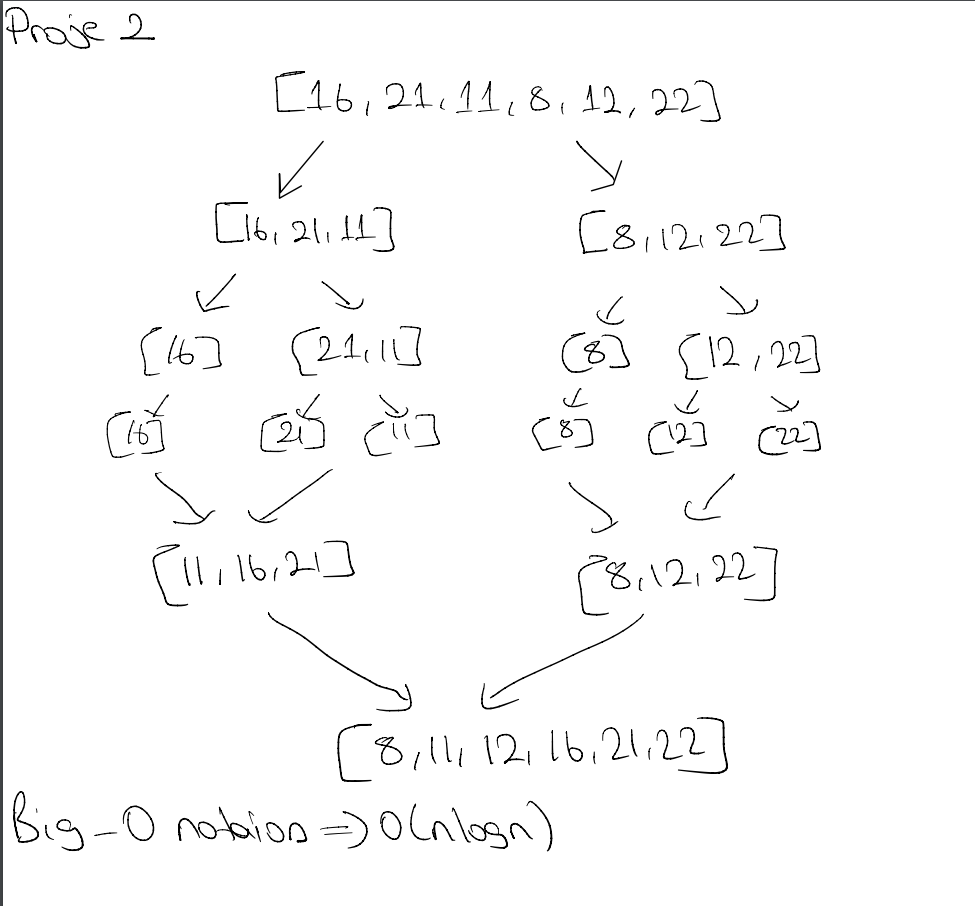 Proje 2
[16, 21, 11, 8, 12, 22]
[16, 21, 11] [8, 12, 22]
[16] [21, 11] [8] [12, 22]
[16] [21] [11] [8] [12] [22]
[11, 16, 21] [8, 12, 22]
[8, 11, 12, 16, 21, 22]
Big-O notaion => O(nlogn)